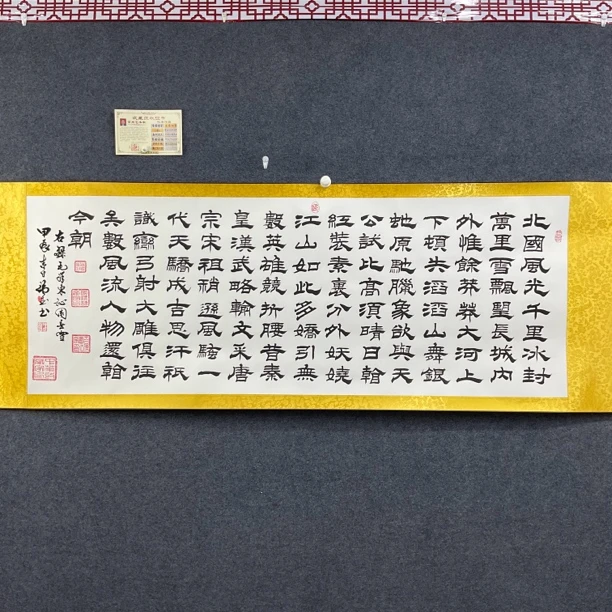 北國風光千里冰封
萬里雪飄望長城內
外惟餘莽莽大河上
下頓失滔滔山舞銀
蛇原馳臘象欲與天
公試比高須晴日看
紅裝素裹分外妖嬈
江山如此多嬌引無
數英雄競折腰昔秦
皇漢武略輸文采唐
宗宋祖稍遜風騷一
代天驕成吉思汗祇
識彎弓射大雕俱往
矣數風流人物還看
今朝
右錄毛澤東沁園春雪
甲辰書